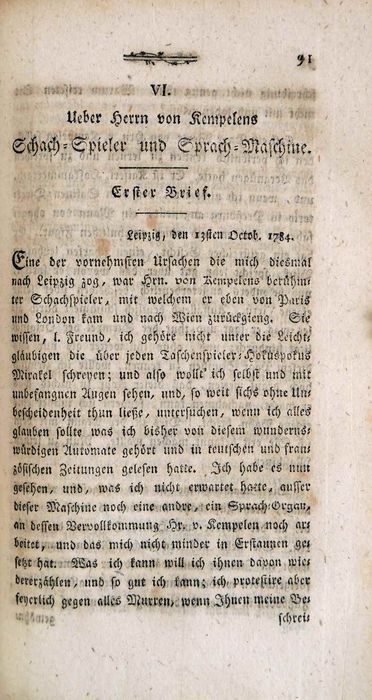 91
VI.
Ueber Herrn von Kempelens
Schach-Spieler und Sprach-Maschine.
Erster Brief.
Leipzig, den 13ten Octob. 1784.
Eine der vornehmsten Ursachen die mich diesmal
nach Leipzig zog, war Hrn. von Kempelens berühm-
ter Schachspieler, mit welchem er eben von Paris
und London kam und nach Wien zurückgieng. Sie
wissen, l. Freund, ich gehöre nicht unter die Leicht-
gläubigen die über jeden Taschenspieler-Hokuspokus
Mirakel schreyen; und also wollt' ich selbst und mit
unbefangnen Augen sehen, und, so weit sichs ohne Un-
bescheidenheit thun ließe, untersuchen, wenn ich alles
glauben sollte was ich bisher von diesem wunderns-
würdigen Automate gehört und in teutschen und fran-
zösischen Zeitungen gelesen hatte. Ich habe es nun
gesehen, und, was ich nicht erwartet hatte, ausser
dieser Maschine noch eine andre, ein Sprach-Organ,
an dessen Vervollkommung Hr. v. Kempelen noch ar-
beitet, und das mich nicht minder in Erstaunen ge-
setzt hat. Was ich kann will ich ihnen davon wie-
dererzählen, und so gut ich kann; ich protestire aber
feyerlich gegen alles Murren, wenn Ihnen meine Be-
schrei-